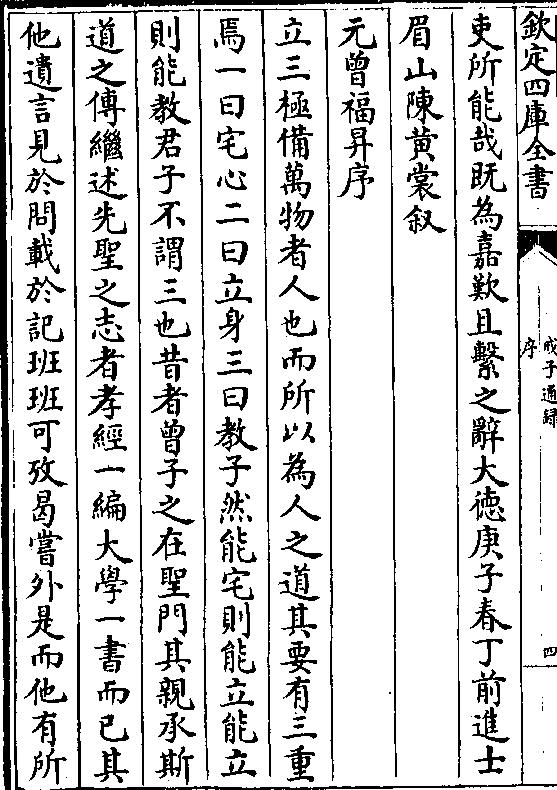 欽定四庫全書
戒子通録
序
四
吏所能哉既為嘉歎且繫之辭大徳庚子春丁前進士
眉山陳黄裳叙
元曾福昇序
立三極備萬物者人也而所以為人之道其要有三重
焉一曰宅心二曰立身三曰教子然能宅則能立能立
則能教君子不謂三也昔者曾子之在聖門其親承斯
道之傳繼述先聖之志者孝經一編大學一書而已其
他遺言見於問載於記班班可攷曷嘗外是而他有所